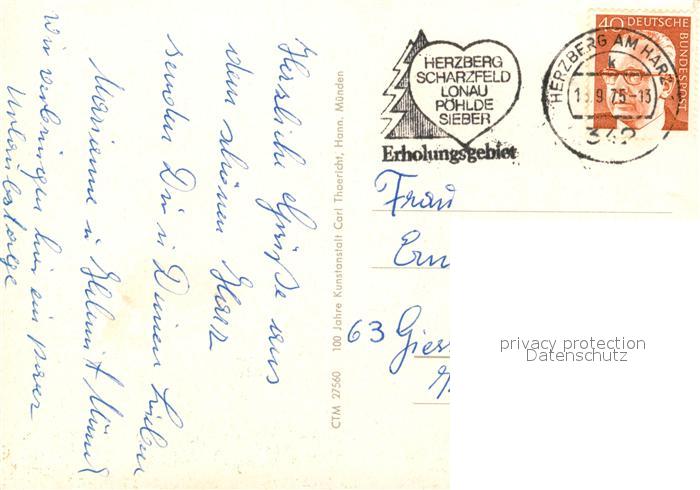 Herzliche Grüße aus
dem schönen Harz
senden Dir u. Deinen Lieben
Marianne u. Helmut
Wir verbringen hier ein paar
Urlaubstage
CTM 27560 100 Jahre Kunstanstalt Carl Thoericht, Hann. Münden
HERZBERG
SCHARZFELD
LONAU
PÖHLDE
SIEBER
Erholungsgebiet
HERZBERG AM HARZ
k
9.75-13
342
40 DEUTSCHE
BUNDESPOST
Frau
63
privacy protection
Datenschutz